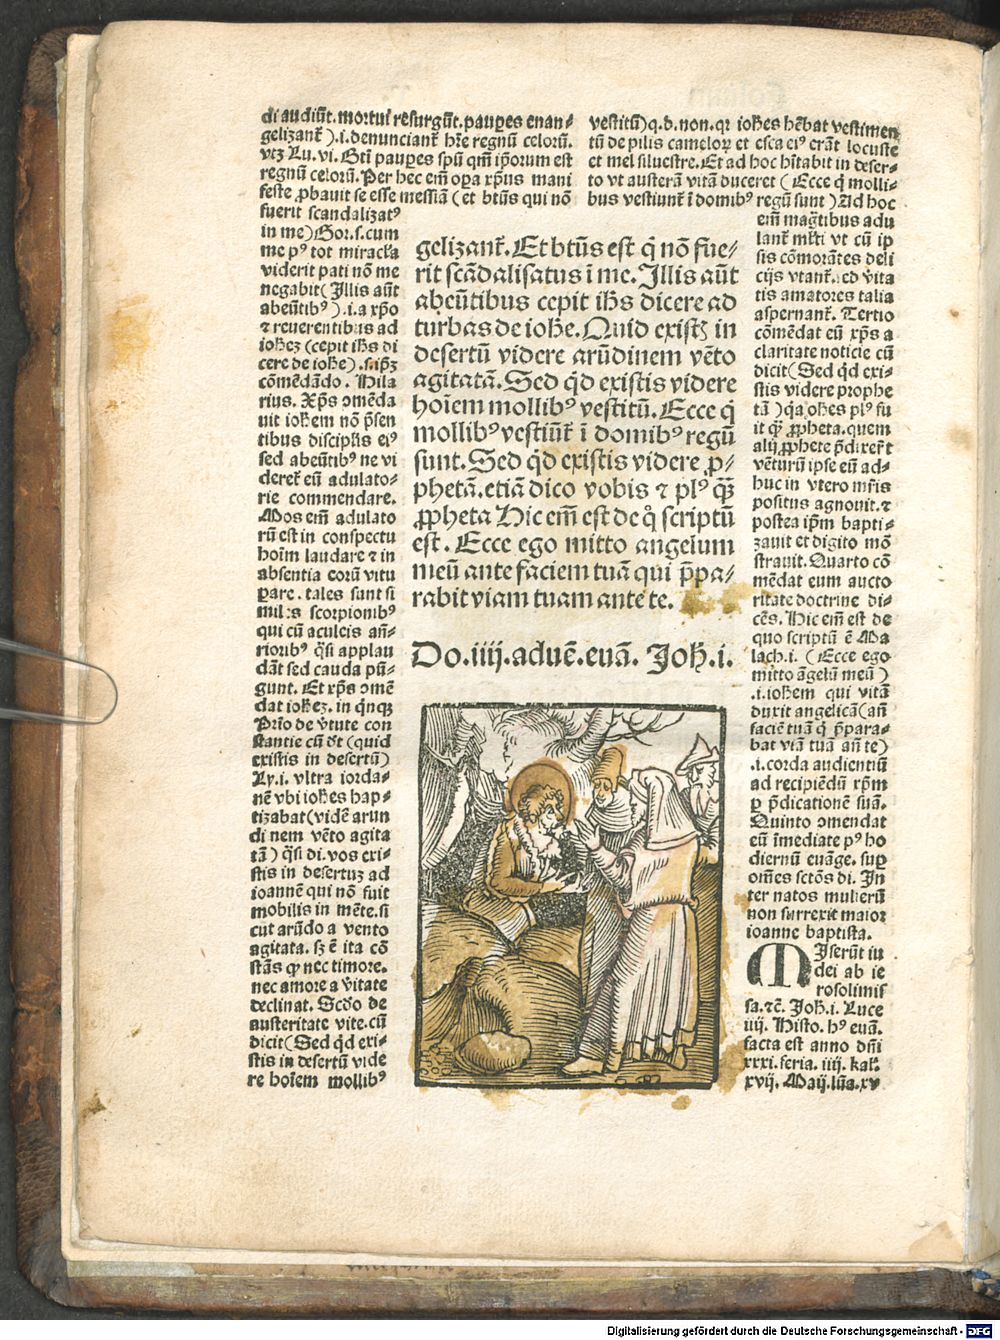 di audiūt. mortui resurgūt. pauꝑes euan⸗
gelizant̄ ).i. denunciant̄ hr̄e regnū celoꝝ.
vtꝫ Lu. vi. Bt̄i pauꝑes spū qm̄ ip̄orum est
regnū celoꝝ. Per hec em̄ oꝑa xp̄us mani
feste ꝓbauit se esse messiā ( et bt̄us qui nō
fuerit scandalizatꝰ
in me ) Gor. s. cum
me pꝰ tot miracl̄a
viderit pati nō me
negabit ( Illis aūt
abeūtibꝰ ).i. a xp̄o
⁊ reuerentibus ad
ioh̄eꝫ (cepit ih̄s di
cere de ioh̄e). s. ip̄ꝫ
cōmēdādo. Hila
rius. Xp̄s ↄmēda
uit ioh̄em nō p̄sen
tibus discipl̄is eiꝰ
sed abeūtibꝰ ne vi
deret̄ eū adulato⸗
rie commendare.
Mos em̄ adulato
rū est in conspectu
hoīm laudare ⁊ in
absentia eorū vitu
ꝑare. tales sunt si
miles scorpionibꝰ
qui cū aculeis an̄⸗
rioribꝰ q̄si applau
dāt sed cauda pū⸗
gunt. Et xp̄s ↄmē
dat ioh̄eꝫ. in q̄nqꝫ
Pr̄io de v̄tute con
stantie cū dt̄ (quid
existis in desertū)
Ly. i. vltra iorda⸗
nē vbi ioh̄es bap⸗
tizabat (videē arun
di nem vēto agita
tā ) q̄si di. vos exi⸗
stis in desertuꝫ ad
ioannē qui nō fuit
mobilis in mēte. si
cut arūdo a vento
agitata. sꝫ ē ita cō
stās ꝙ nec timore.
nec amore a v̄itate
declinat. Scd̄o de
austeritate vite. cū
dicit (Sed q̄d exi⸗
stis in desertū vide
re hoīem mollibꝰ
vestitū) q. d. non. qꝛ ioh̄es hēbat vestimen
tū de pilis cameloꝝ et esca eiꝰ erāt locuste
et mel siluestre. Et ad hoc hītabit in deser⸗
to vt austerā vitā duceret ( Ecce q̄ molli⸗
bus vestiunt̄ ī domibꝰ regū sunt ) Ad hoc
em̄ magtibus adu
lant̄ ml̄ti vt cū ip
sis cōmorātes deli
cijs vtant̄. sed v̄ita
tis amatores talia
aspernant̄. Tertio
cōmēdat eū xp̄s a
claritate noticie cū
dicit (Sed q̄d exi⸗
stis videre prophe
tā ) q̄a ioh̄es plꝰ fu
it q̄ꝫ ꝓpheta. quem
alij ꝓphete p̄dixer̄t
vētuꝝ ipse eū ad⸗
huc in vtero mr̄is
positus agnouit. ⁊
postea ip̄m bapti⸗
zauit et digito mō
strauit. Quarto cō
mēdat eum aucto
ritate doctrine di⸗
cēs. Hic em̄ est de
quo scriptū ē Ma
lach. i. ( Ecce ego
mitto āgelū meū )
.i. ioh̄em qui vitā
duxit angelicā (an̄
faciē tuā q̄ p̄para⸗
bat viā tuā an̄ te)
.i. corda audientiū
ad recipiēdū xp̄m
ꝑ p̄dicationē suā.
Quinto ↄmendat
eū īmediate pꝰ ho
diernū euāge. suꝑ
om̄es sctōs di. In
ter natos mulierū
non surrexit maior
ioanne baptista.
MIserūt iu
dei ab ie
rosolimis
sa. ⁊c̄. Joh̄. i. Luce
iij. Histo. hꝰ euā.
facta est anno dn̄i
xxxi. feria. iiij. kal̄.
xvij. Maij. lūa. xv
gelizant̄. Et bt̄us est q̄ nō fue⸗
rit scādalisatus ī me. Illis aūt
abeūtibus cepit ih̄s dicere ad
turbas de ioh̄e. Quid existꝫ in
desertū videre arūdinem vēto
agitatā. Sed q̄d existis videre
hoīem mollibꝰ vestitū. Ecce q̄
mollibꝰ vestiūt̄ ī domibꝰ regū
sunt. Sed q̄d existis videre ꝓ⸗
phetā. etiā dico vobis ⁊ plꝰ q̄ꝫ
ꝓpheta Hic em̄ est de q̊ scriptū
est. Ecce ego mitto angelum
meū ante faciem tuā qui p̄pa⸗
rabit viam tuam ante te.
Do. iiij. aduē. euā. Joh̄. i.
Digitalisierung gefördert durch die Deutsche Forschungsgemeinschaft - DFG